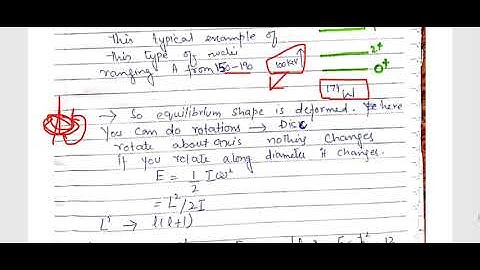 This typical example of
this type of nuclei
ranging A from 150-190
100 keV
2+
0+
W
→ So equilibrium shape is deformed. here
You can do rotations → Disc
rotate about axis nothing changes
If you rotate along diameter it changes.
E = 1/2 Iω²
= L²/2I
L² → l(l+1)